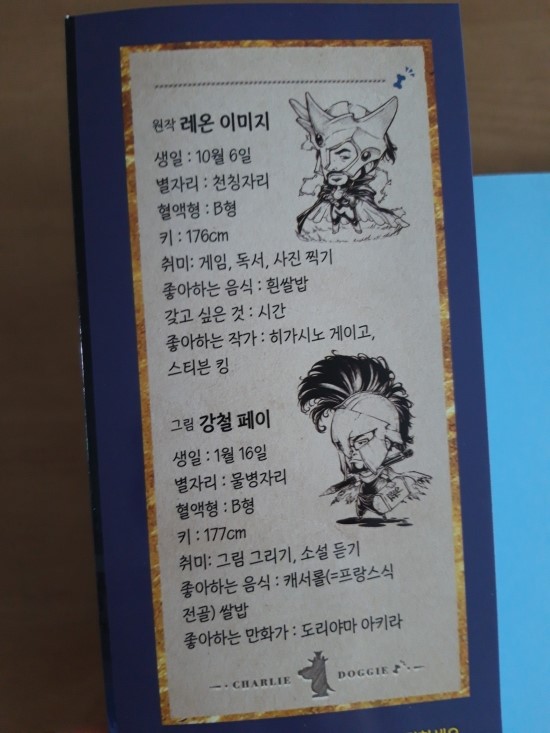 원작 레온 이미지
생일 : 10월 6일
별자리 : 천칭자리
혈액형 : B형
키 : 176cm
취미: 게임, 독서, 사진 찍기
좋아하는 음식 : 흰쌀밥
갖고 싶은 것 : 시간
좋아하는 작가 : 히가시노 게이고,
스티븐 킹
그림 강철 페이
생일 : 1월 16일
별자리 : 물병자리
혈액형 : B형
키 : 177cm
취미: 그림 그리기, 소설 듣기
좋아하는 음식 : 캐서롤(=프랑스식
전골) 쌀밥
좋아하는 만화가 : 도리야마 아키라
CHARLIE DOGGIE